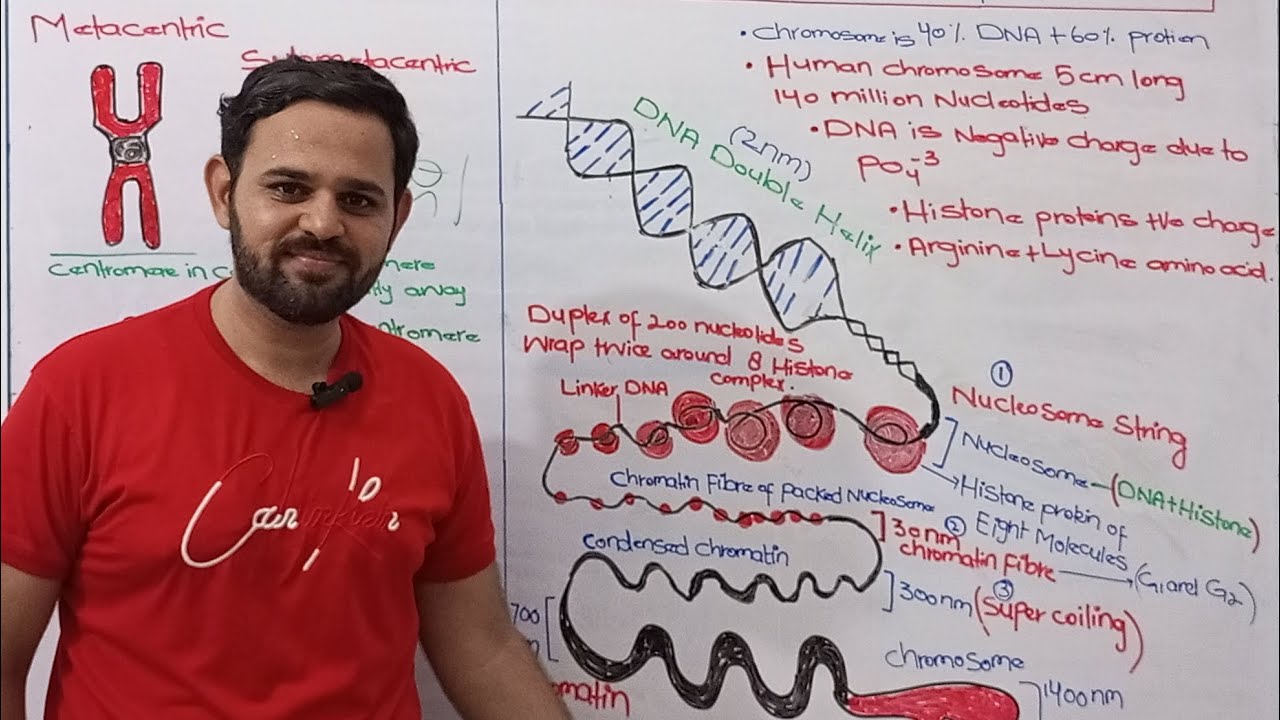 Metacentric
Submetacentric
Centromere in
• Chromosome is 40% DNA + 60% protien
• Human chromosome 5cm long
140 million Nucleotides
• DNA is Negative charge due to
PO4-3
• Histone proteins +ve charge
• Arginine + Lycine amino acid.
DNA Double Helix
(2nm)
Duplex of 200 nucleotides
Wrap twice around 8 Histone
complex.
Linker DNA
①
Nucleosome String
Nucleosome - (DNA+Histone)
Histone protein of
Eight Molecules
Chromatin Fibre of Packed Nucleosome
②
30nm
chromatin Fibre
(G1 and G2)
Condensed chromatin
③
300nm (Super coiling)
700
Chromosome
1400nm